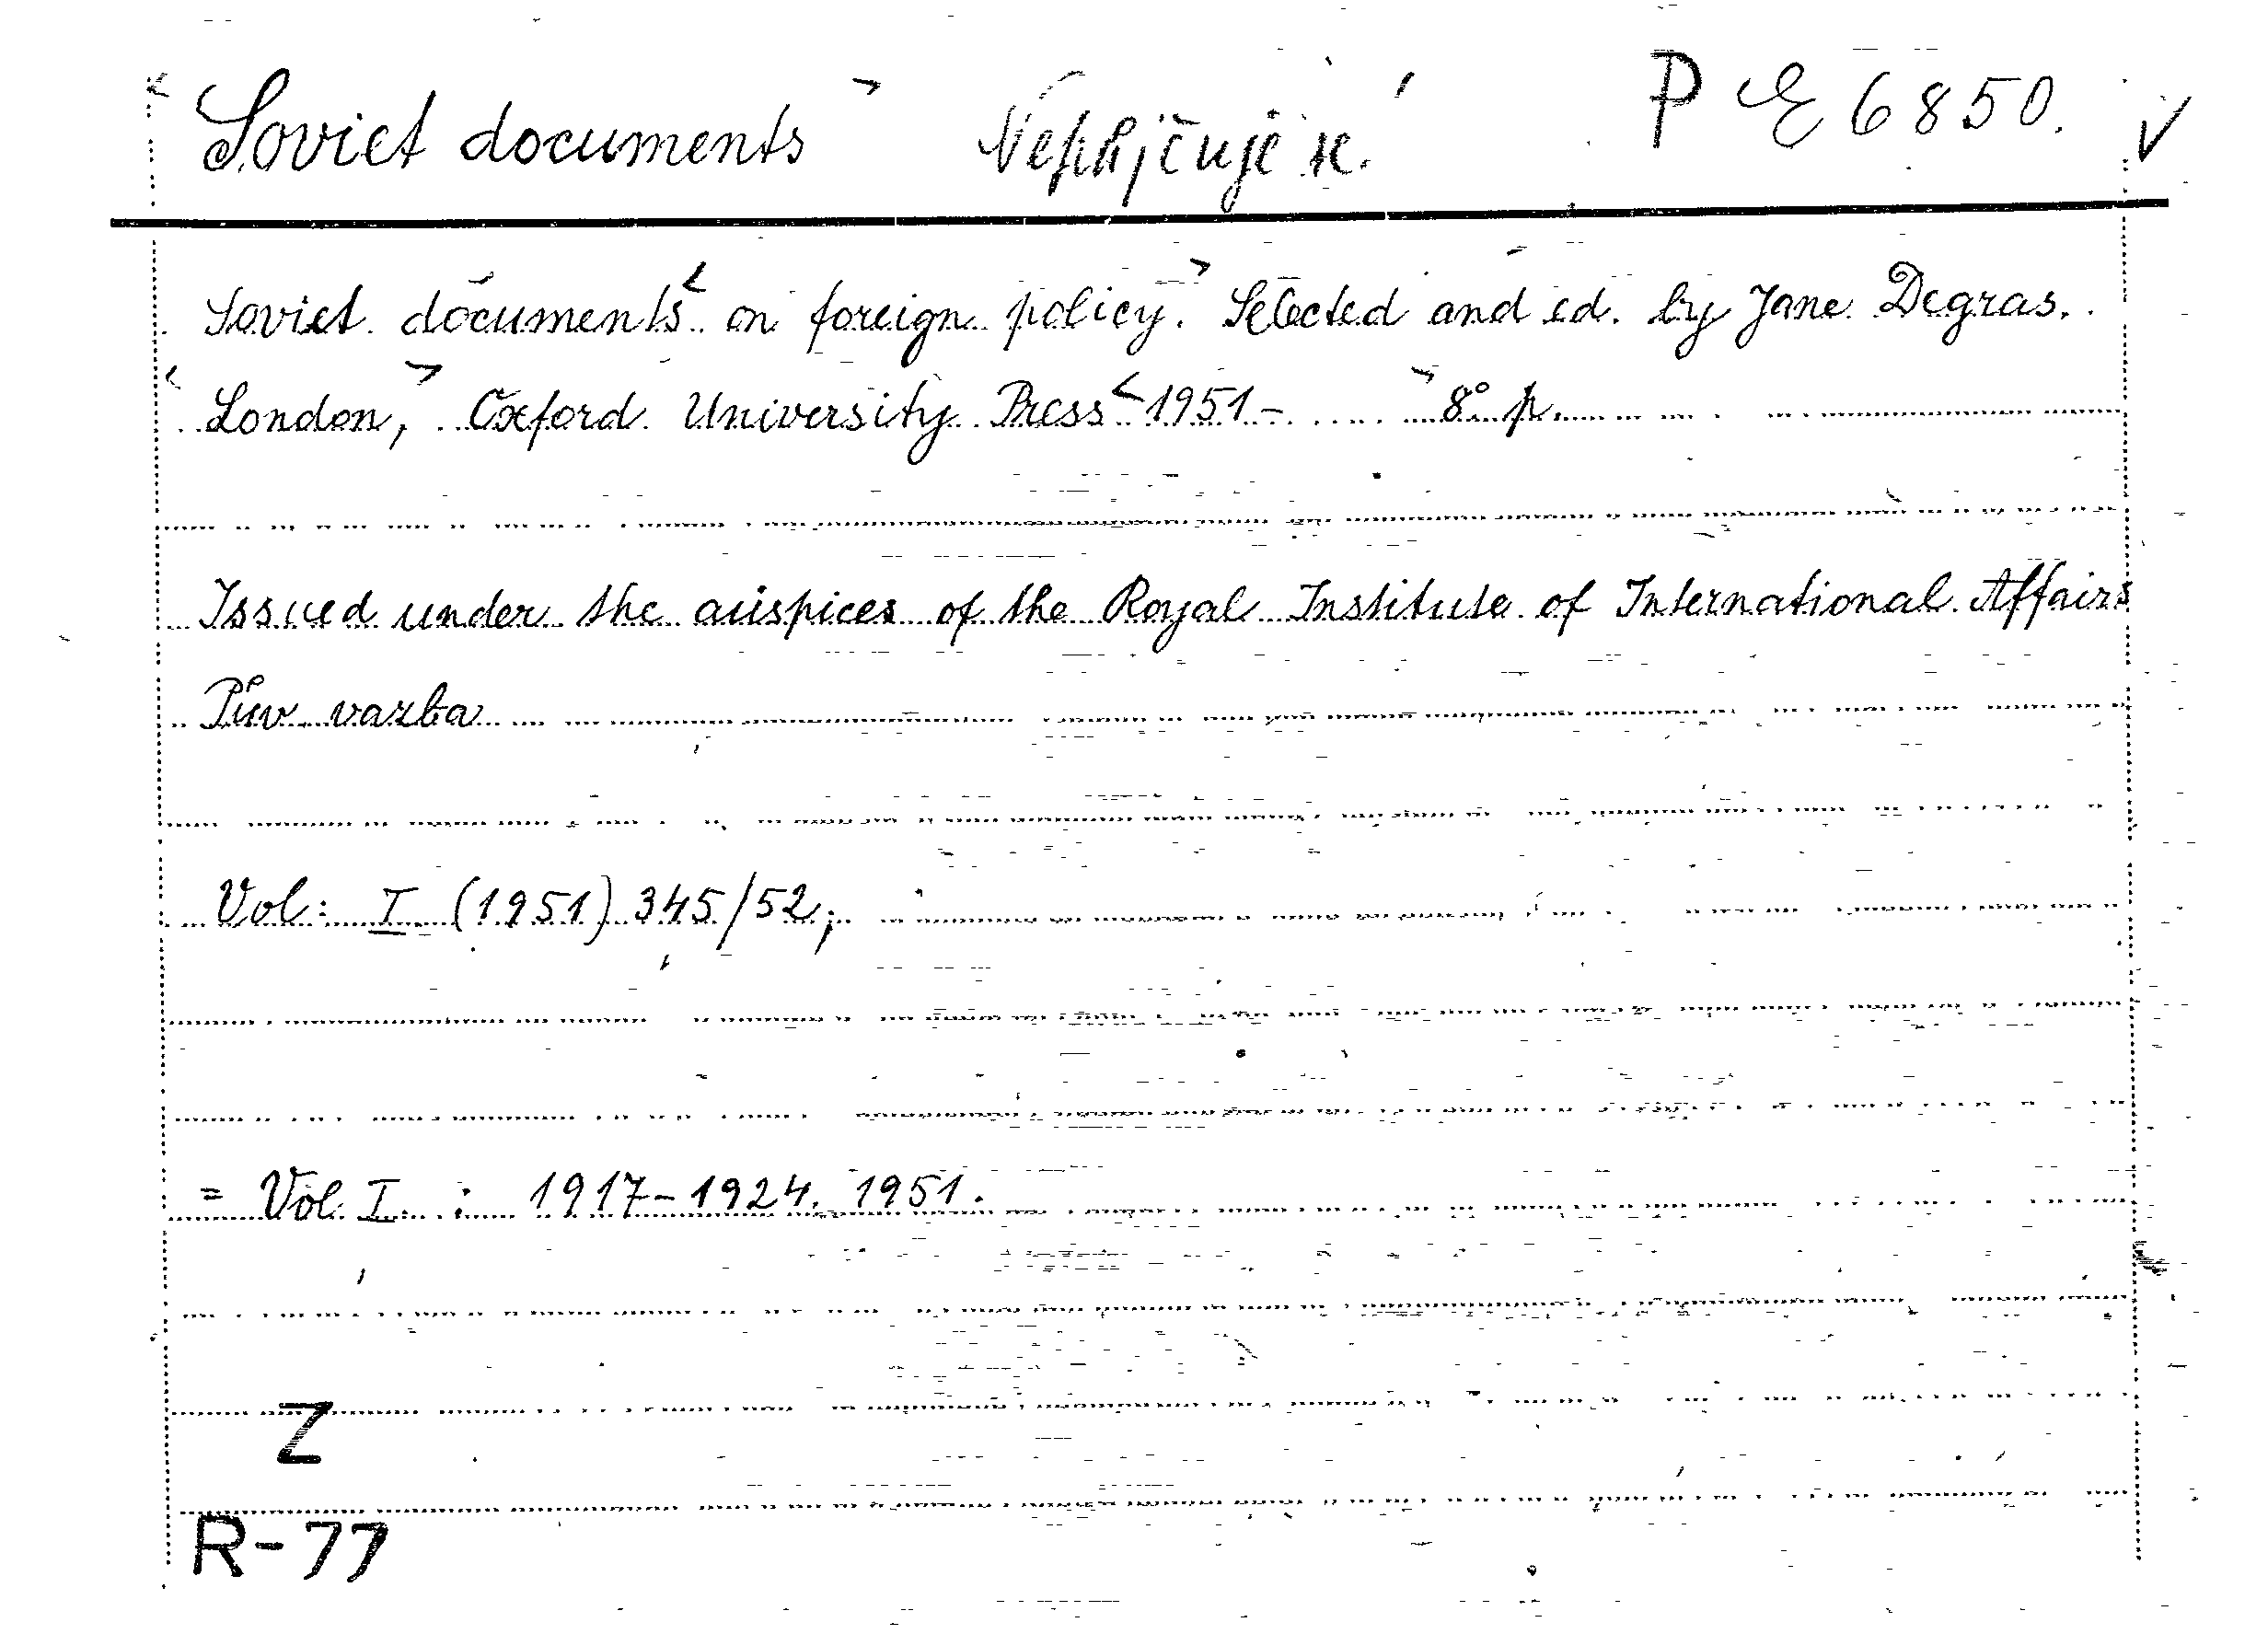 Soviet documents Nepůjčuje se! P E 6850. √
Soviet documents on foreign policy. Selected and ed. by Jane Degras.
London, Oxford University Press 1951- 8° p.
Issued under the auspices of the Royal Institute of International Affairs
Pův vazba
Vol: I. (1951) 345/52;
= Vol. I. : 1917-1924. 1951.
Z
R-77